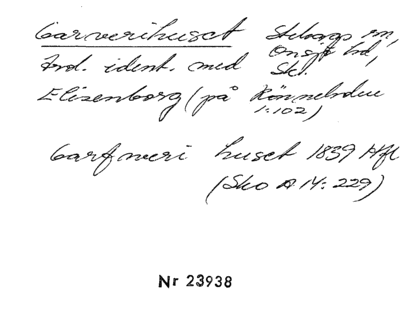 Garverihuset Stehags sn,
Onsjö hd,
Trol. ident. med Sk.
Elisenborg (på Rönneholm
1:102)
Garfveri huset 1859 Hfl
(Sko A 14: 229)
Nr 23938